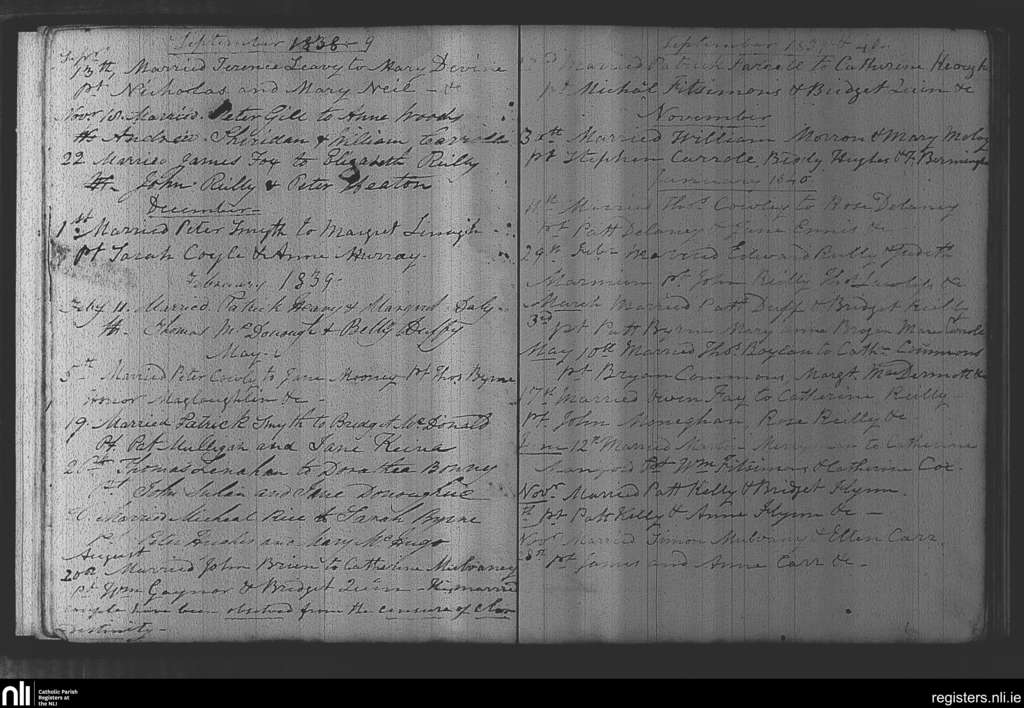 September 1838-9
Sepr
13th, Married Terence Leavy to Mary Devine
pt Nicholas and Mary Neil - &c
Novr 18. Married. Peter Gill to Anne Woods
Andrew Sheridan &
22 Married James Fay to Elizabeth Reilly
John Reilly & Peter Heaton
December
1st Married Peter Smyth to Margret
pt Sarah Coyle & Anne Murray.
February 1839-
Feby 11. Married Patrick & Margaret Daly
Thomas McDonough & Betty Duffy
May-
5th Married Peter Cowley to Jane Mooney pt Thos Byrne
Honor Maglaughlin &c -
19. Married Patrick Smyth to Bridget McDonald
Pt Pat Mulligan and Jane
Thomas Lenahan to Dorathea
John and Jane Donoughue
Married Micheal Rice to Sarah Byrne
Hughes and Mary McHugo
August
20th Married John Brien to Catherine Mulvaney
pt Wm Gaynor & Bridget Quinn - this married
couple have been from the censure of clan
destinity-
September
Married Patrick Farrell to Catherine Keough
pt Michal Fitsimons & Bridget Quin &c
November
30th Married William Morron & Mary
pt Stephen Carrole Biddy Hughes & Birmingham
January 1840
11th Married Thos Cowley to Rose Delaney
pt Patt Delaney & Jane Ennis &c
29th Feb- Married Edward Reilly & Judith
pt. John Reilly Thos &c
March Married Patt Duff & Bridget Reilly
3rd pt Patt Byrne Mary Anne Bryan Mary Carrole
May 10th Married Thos. Boylan to Cathn Commons
pt Bryan Commons, Margt MacDermott &c
17th Married Owen Fay to Catherine Reilly
pt. John Moneghan, Rose Reilly &c
12th Married Martin to Catherine
Pt Wm Fitsimons & Catherine Cox.
Novr. Married Patt Kelly & Bridget Flynn.
pt Patt Kelly & Anne Flynn &c -
Novr Married Simon Mulvany & Ellen Carr.
pt James and Anne Carr &c -
nli
Catholic Parish
Registers at
the NLI
registers.nli.ie